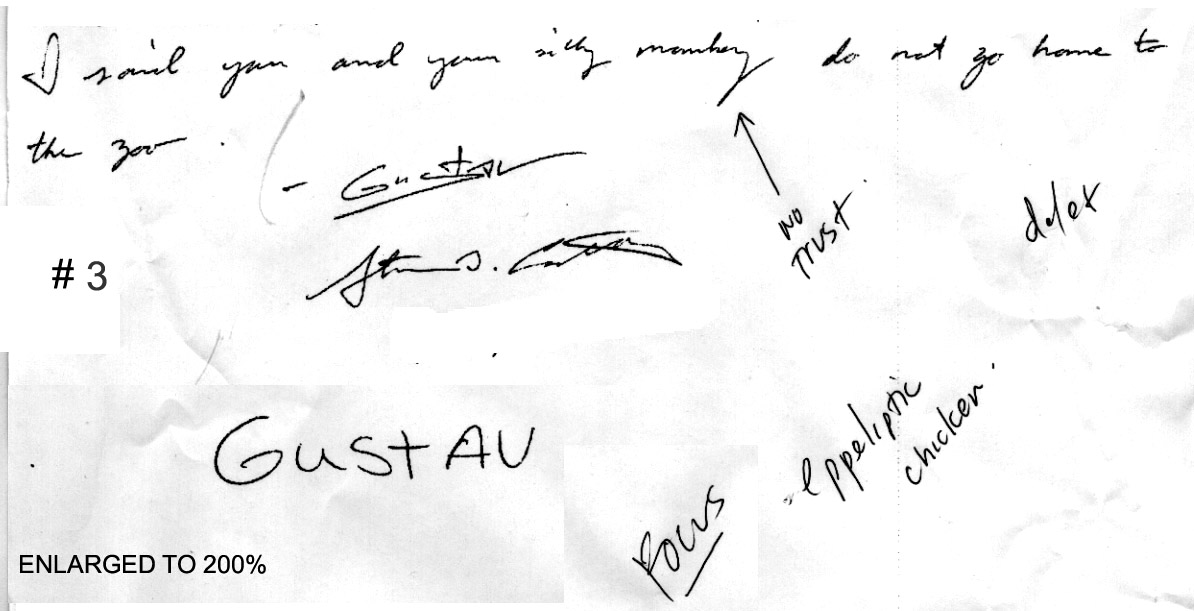 I said you and your silly monkey do not go home to
the zoo.
- Gustav
# 3
NO
TRUST.
GUSTAV
eppeliptic
chicken.
FOCUS
ENLARGED TO 200%